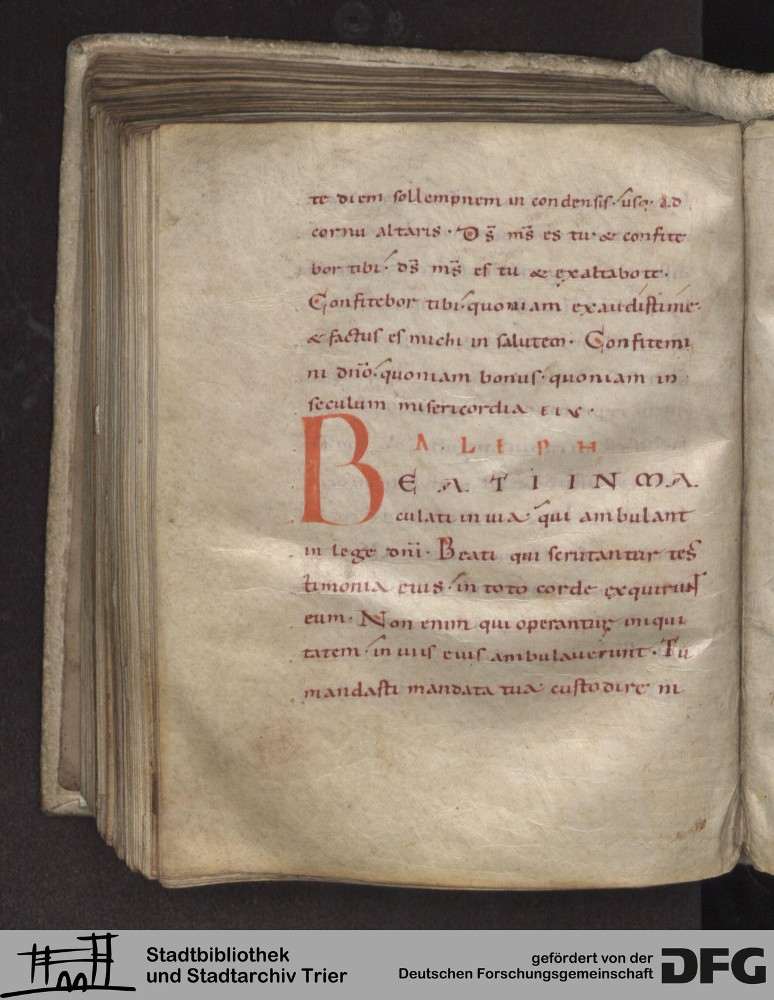 te diem sollempnem in condensis· usq· ad
cornu altaris · D̄s̄ m̄s̄ es tu· & confite
bor tibi· d̄s̄ m̄s̄ es tu & exaltabo te·
Confitebor tibi· quoniam exaudisti me·
& factus es michi in salutem · Confitemi
ni dn̄o· quoniam bonus· quoniam in
seculum misericordia eius·
ALEPH
BEATI INMA
culati in uia· qui ambulant
in lege dn̄i · Beati qui scrutantur tes
timonia eius · in toto corde exquirunt
eum · Non enim qui operantur iniqui
tatem · in uiis eius ambulauerunt · Tu
mandasti mandata tua· custodire ni
Stadtbibliothek
und Stadtarchiv Trier
gefördert von der
Deutschen Forschungsgemeinschaft
DFG